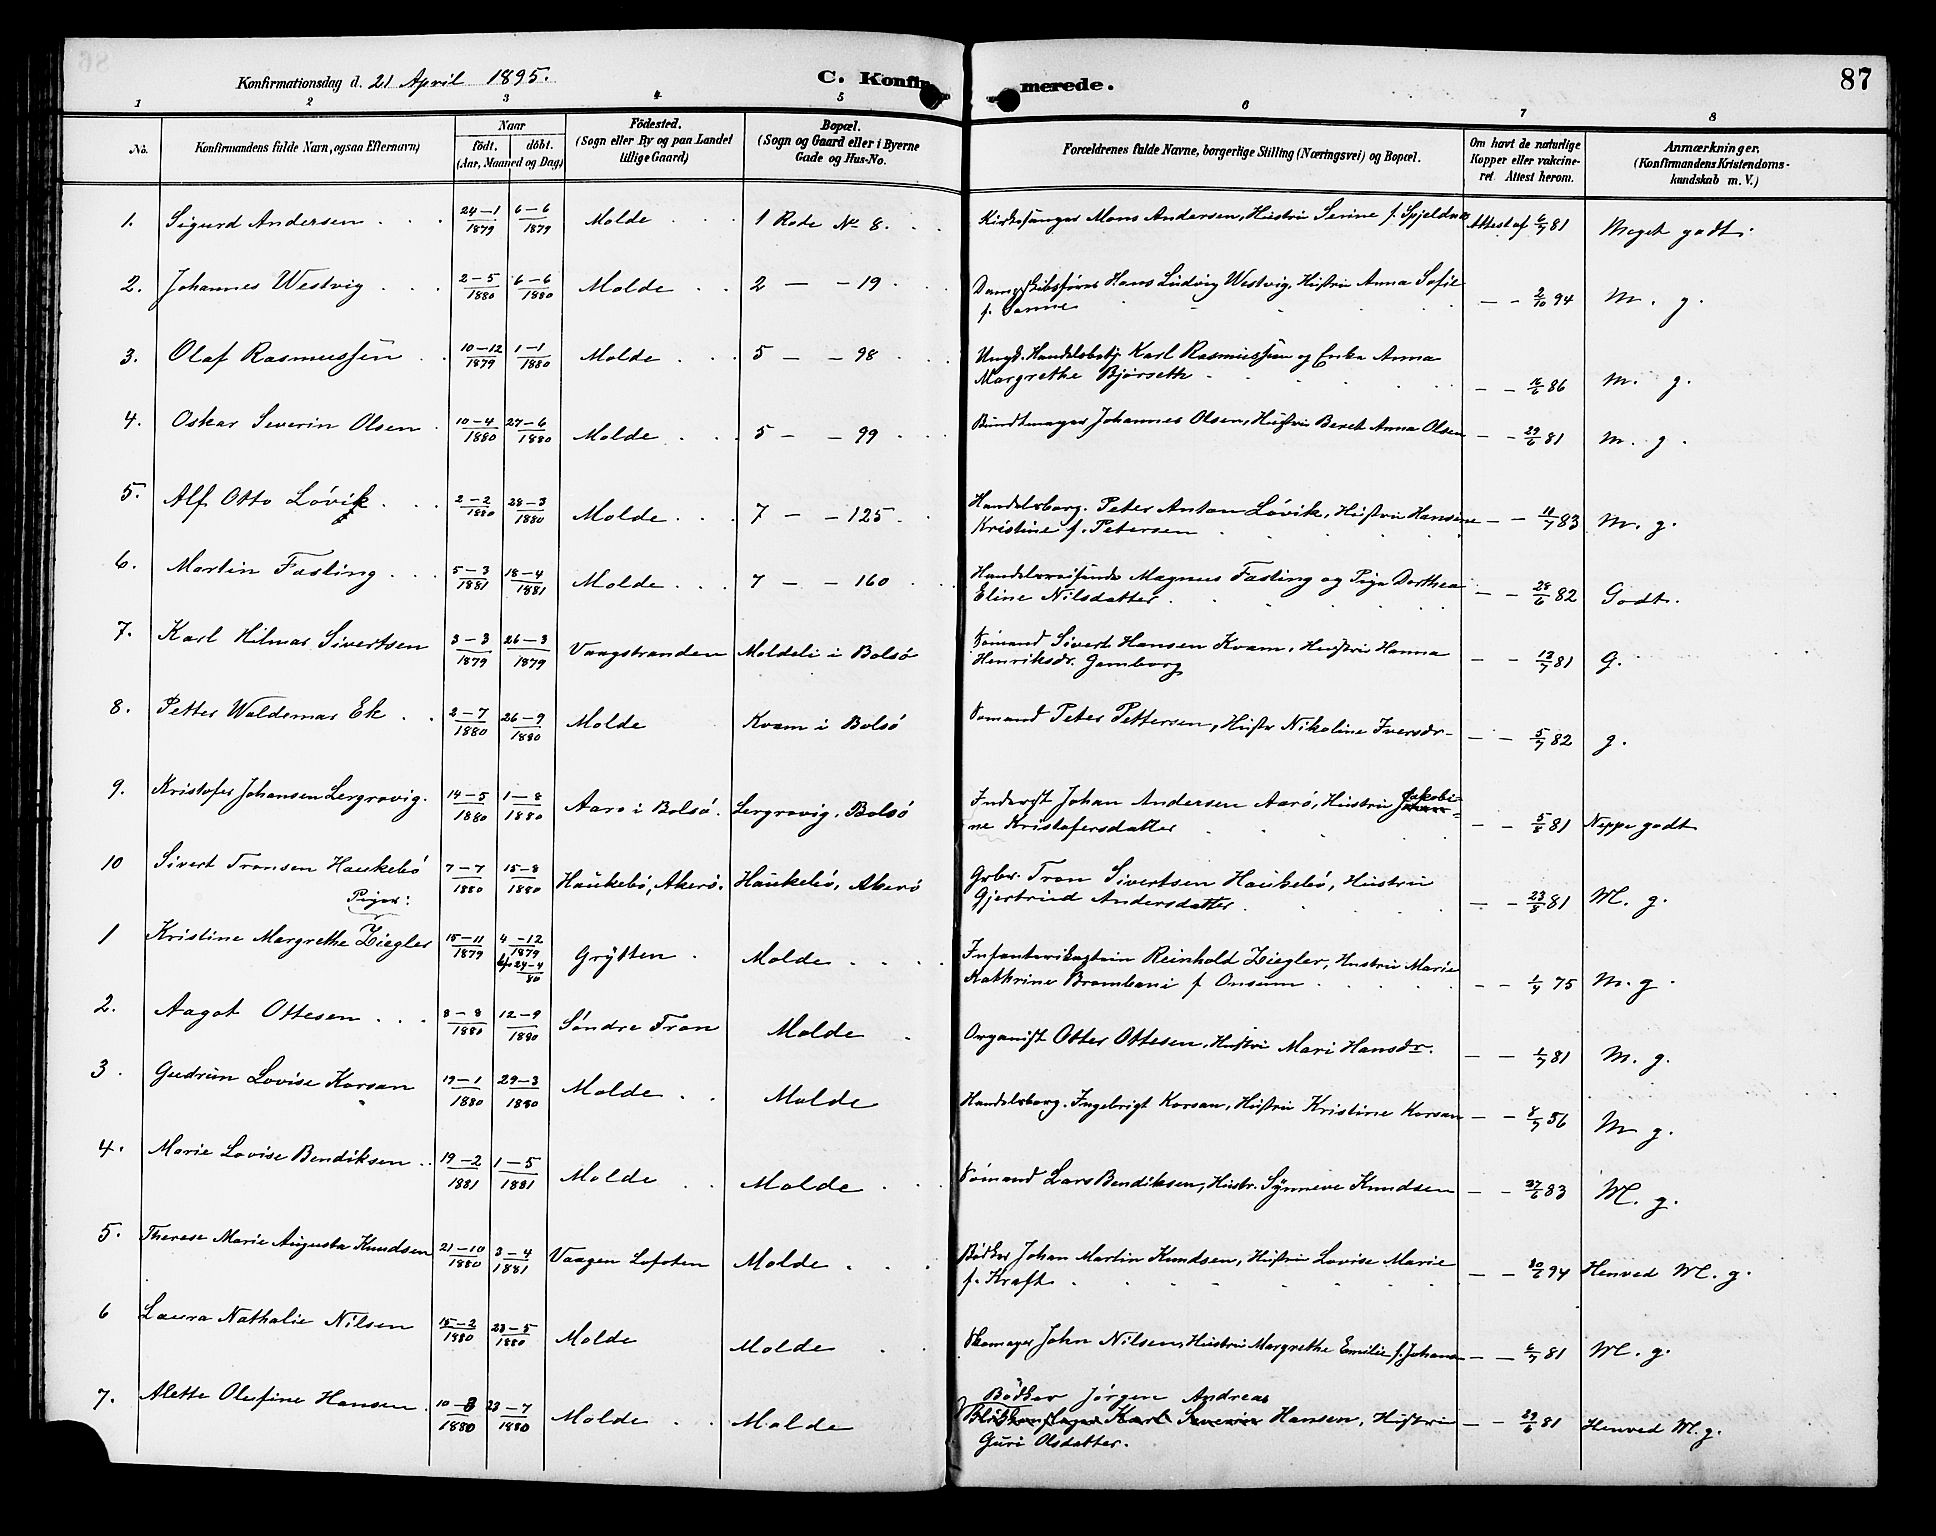 Konfirmationsdag d. 21 April 1895. C. Konfir- merede. 87
1 2 3 4 5 6 7 8
No. Konfirmandens fulde Navn, ogsaa Efternavn) Naar födt. döbt. (Aar, Maaned og Dag) Födested. (Sogn eller By og paa Landet tillige Gaard) Bopæl. (Sogn og Gaard eller i Byerne Gade og Hus-No. Forældrenes fulde Navne, borgerlige Stilling (Næringsvei) og Bopæl. Om havt de naturlige Kopper eller vakcineret. Attest herom. Anmærkninger. (Konfirmandens Kristendomskundskab m. V.)
1. Sigurd Andersen 24-1 1879 6-6 1879 Molde 1 Rode No 8. Kirkesanger Mons Andersen, Hustru Serine f. Spjeldnæs Attest af 6/7 81 Meget godt.
2. Johannes Westvig 2-5 1880 6-6 1880 Molde 2 — - 19 Dampskibsfører Hans Ludvig Westvig, Hustru Anna Sofie
f. Sanne — - 2/10 94 M. g.
3. Olaf Rasmussen 10-12 1879 1-1 1880 Molde 5 — - 98 Ungk. Handelsbetj. Karl Rasmussen og Enke Anna
Margrethe Bjørseth — - 16/6 86 M. g.
4. Oskar Severin Olsen 10-4 1880 27-6 1880 Molde 5 — - 99 Bundtmager Johannes Olsen, Hustru Beret Anna Olsen — - 29/6 81 M. g.
5. Alf Otto Lövik 2-2 1880 28-3 1880 Molde 7 — - 125 Handelsborg. Peter Anton Lövik, Hustru Hansine
Kristine f. Petersen — - 11/7 83 M. g.
6. Martin Fasting 5-3 1881 18-4 1881 Molde 7 — - 160 Handelsreisende Magnus Fasting og Pige Dorthea
Eline Nilsdatter — - 28/6 82 Godt.
7. Karl Hilmar Sivertsen 3-3 1879 26-3 1879 Vaagstranden Moldeli i Bolsö Sömand Sivert Hansen Kvam, Hustru Hanna
Henriksdr. Gamborg — - 13/7 81 G.
8. Petter Waldemar Ek 2-7 1880 26-9 1880 Molde Kvam i Bolsö Sømand Peter Pettersen, Hustr Nikoline Iversdr — - 5/7 82 g.
9. Kristofer Johansen Lergrovig. 14-5 1880 1-8 1880 Aarö i Bolsö. Lergrovig, Bolsö Inderst Johan Andersen Aarö, Hustru Jakobi-
ne Kristofersdatter — - 5/8 81 Neppe godt
10 Sivert Tronsen Haukebö 7-7 1880 15-8 1880 Haukebö, Akerö. Haukebö, Akerö Grbr. Tron Sivertsen Haukebö, Hustru
Gjertrud Andersdatter — - 23/8 81 M. g.
Piger:
1 Kristine Margrethe Ziegler 15-11 1879 4-12 1879 24-4 80 Grytten Molde Infanterikaptein Reinhold Ziegler, Hustru Marie
Kathrine Brambani f. Onsum — - 1/4 75 M. g.
2. Aagot Ottesen 8-8 1880 12-9 1880 Söndre Fron Molde Organist Otter Ottesen, Hustru Mari Hansdr. — - 1/7 81 M. g.
3. Gudrun Lovise Korsan 19-1 1880 29-3 1880 Molde Molde Handelsborg. Ingebrigt Korsan, Hustru Kristine Korsan — - 8/7 56 M g.
4. Marie Lovise Bendiksen 19-2 1881 1-5 1881 Molde Molde Sömand Lars Bendiksen, Hustr. Synneve Knudsen — - 27/6 83 M. g.
5. Therese Marie Augusta Knudsen 21-10 1880 3-4 1881 Vaagen Lofoten Molde Bødker Johan Martin Knudsen, Hustru Lovise Marie
f. Kraft — - 30/6 94 Henved M. g.
6 Laura Nathalie Nilsen 15-2 1880 23-5 1880 Molde Molde Skomager John Nilsen, Hustru Margrethe Emilie f. Johans — - 6/7 81 M. g.
7. Alette Olufine Hansen 10-3 1880 23-7 1880 Molde Molde Bödker Jörgen Andreas
Karl Severin Hansen, Hustru
Guri Olsdatter. — - 29/6 81 Henved M. g.